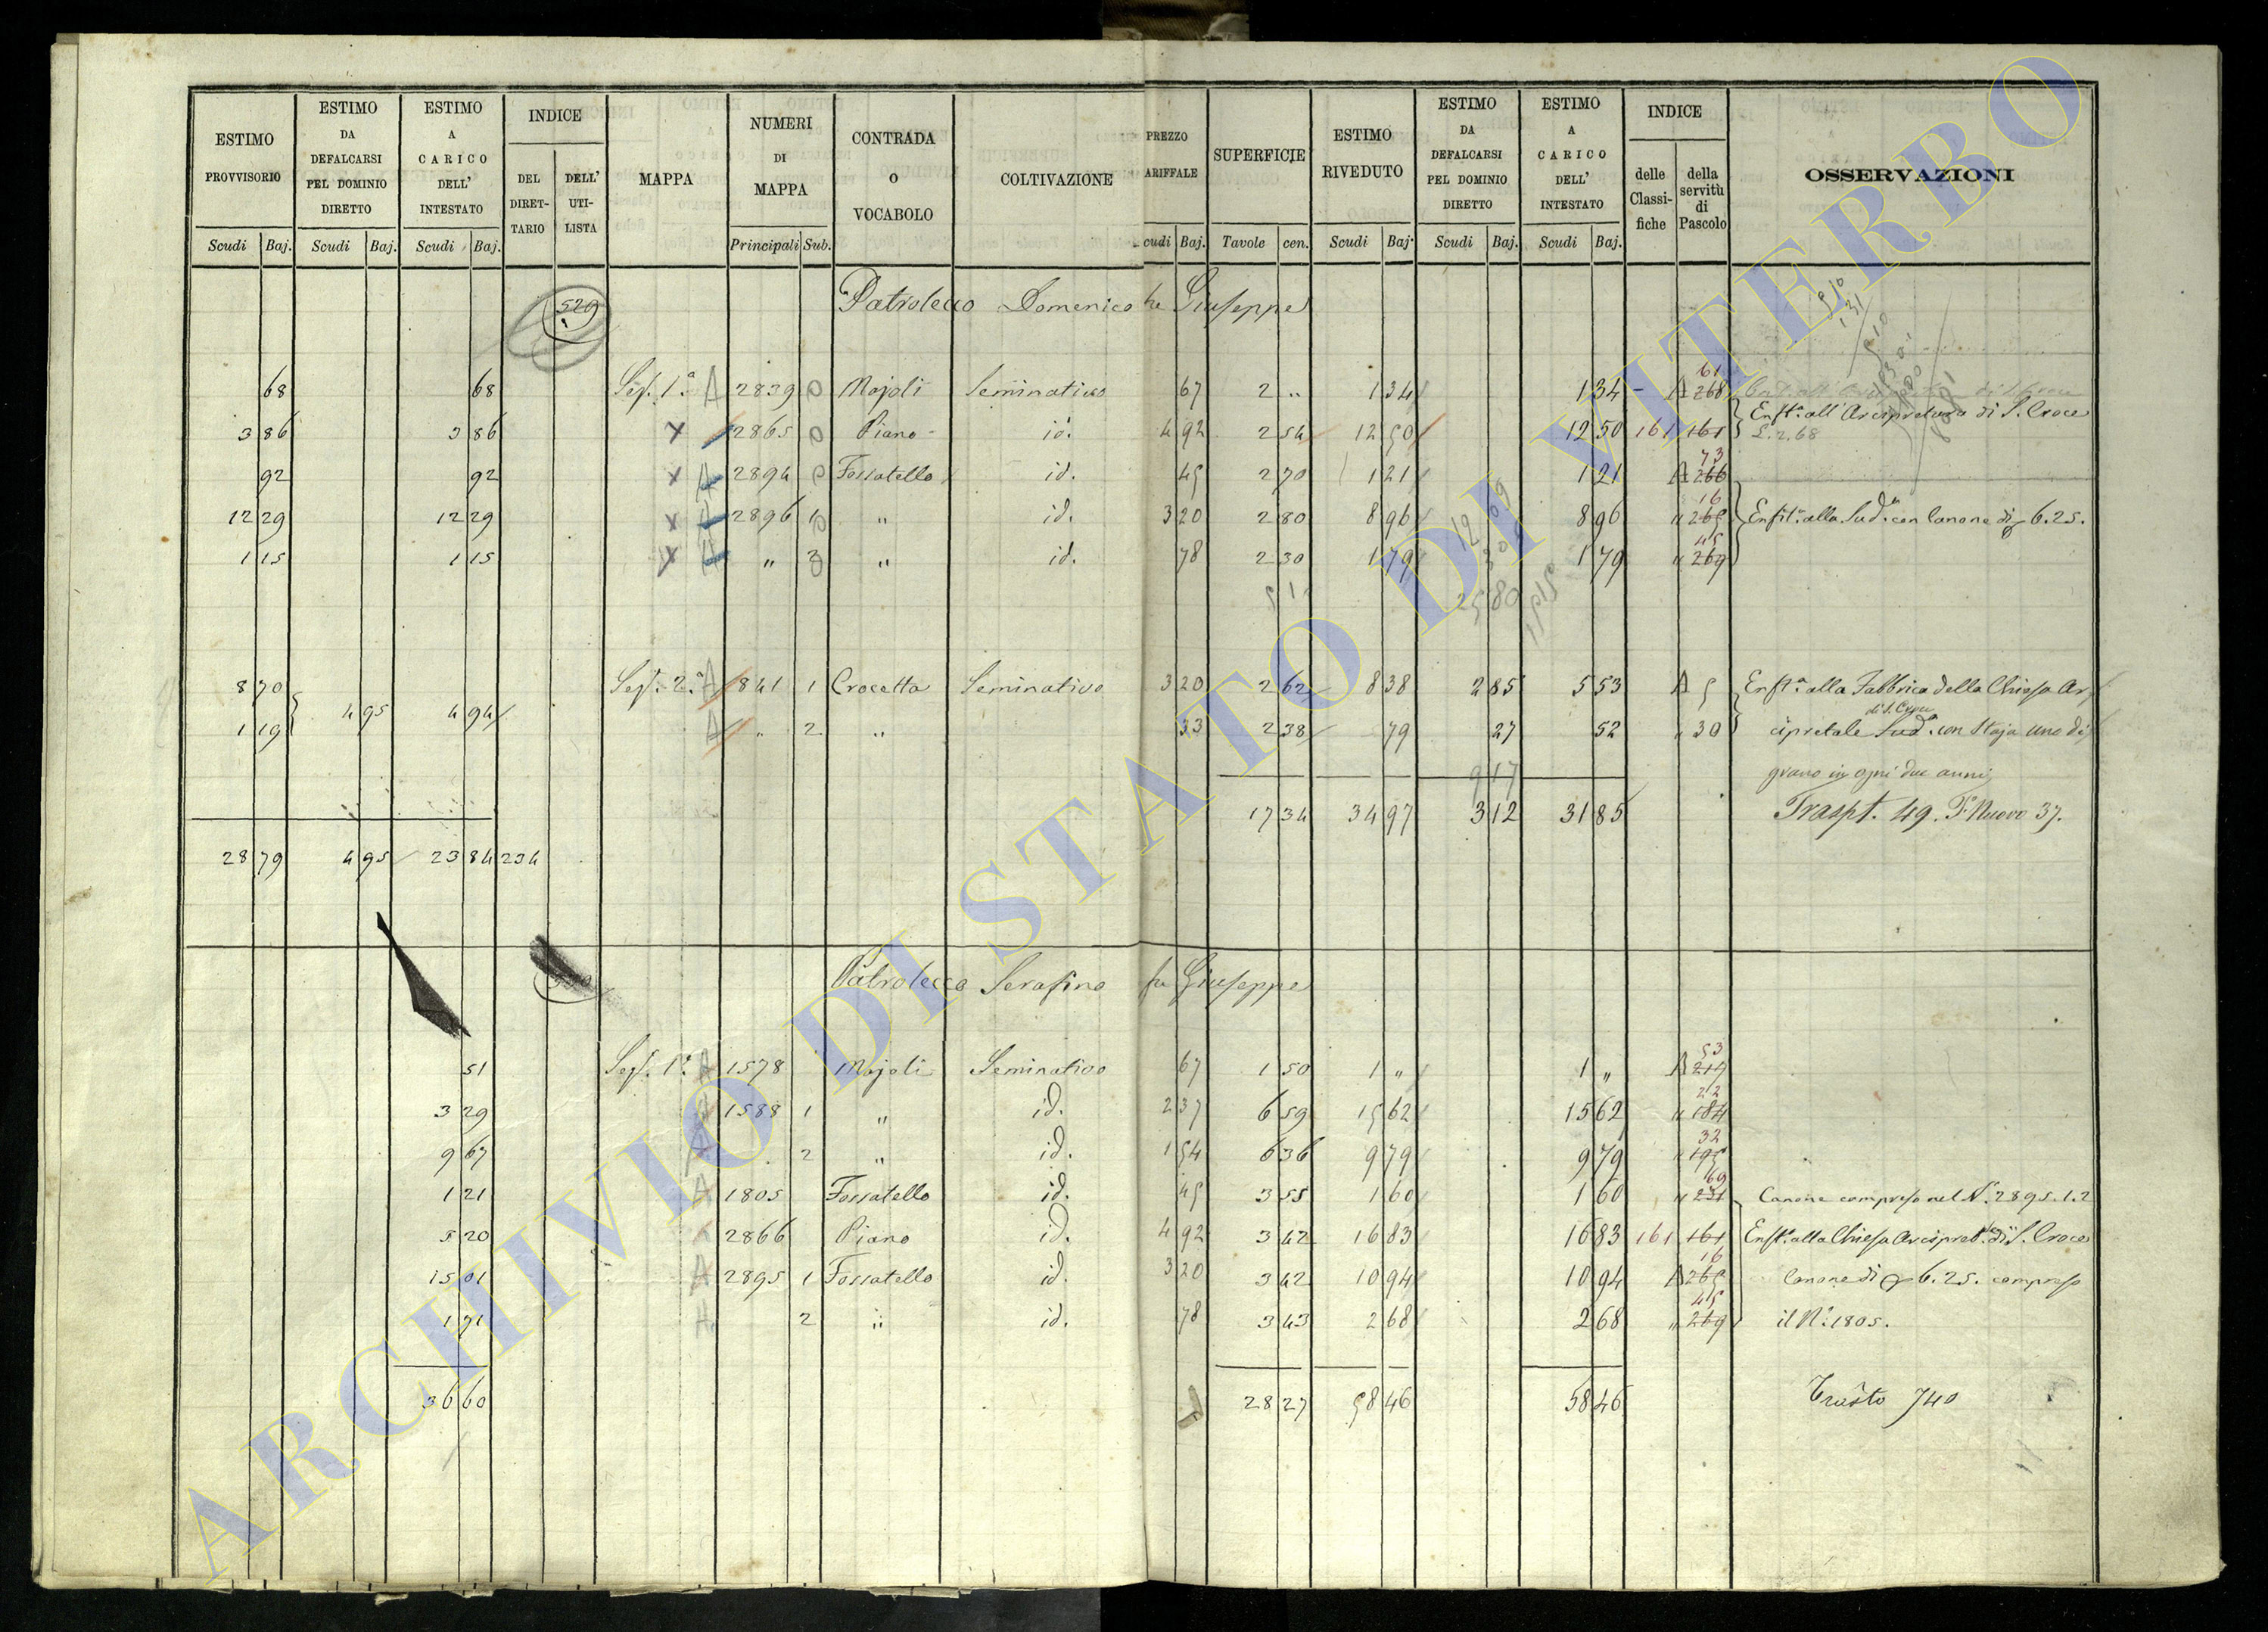 ESTIMO PROVVISORIO | ESTIMO DA DEFALCARSI PEL DOMINIO DIRETTO | ESTIMO A CARICO DELL' INTESTATO | INDICE DEL DIRETTARIO | DELL' UTILISTA | MAPPA | NUMERI DI MAPPA | CONTRADA O VOCABOLO | COLTIVAZIONE | PREZZO ARIFFALE | SUPERFICIE | ESTIMO RIVEDUTO | ESTIMO DA DEFALCARSI PEL DOMINIO DIRETTO | ESTIMO A CARICO DELL' INTESTATO | INDICE delle Classifiche | della servitù di Pascolo | OSSERVAZIONI
Scudi Baj. Scudi Baj. Scudi Baj. Principali Sub. cudi Baj. Tavole cen. Scudi Baj. Scudi Baj. Scudi Baj.
529 Patrolecco Domenico fu Giuseppe
68 68 Sez. 1.ª A 2839 0 Mojoli Seminativo 67 2 „ 1 34 1 34 - A 268 61
3 86 3 86 X 2865 0 Piano id. 4 92 2 54 12 50 12 50 161 161 Enfit.ª all' Arcipretura di S. Croce
L. 2,68
92 92 X A 2894 0 Fossatello id. 45 2 70 1 21 1 21 A 266 73
12 29 12 29 X A 2896 1 „ id. 3 20 2 80 8 96 8 96 „ 265 16 Enfit.ª alla Sud.ª con Canone di 6.25.
1 15 1 15 X A „ 3 „ id. 78 2 30 1 79 1 79 „ 269 45
25 80
8 70 Sez. 2.ª A 841 1 Crocetta Seminativo 3 20 2 62 8 38 2 85 5 53 A 5 Enfit.ª alla Fabbrica della Chiesa Ar
4 95 4 94
1 19 A „ 2 „ 33 2 38 79 27 52 „ 30 cipretale Sud.ª con Staja uno di
di S. Croce
917 grano in ogni due anni
17 34 34 97 3 12 31 85 Traspt. 49. F. Nuovo 37.
28 79 4 95 23 84 234
Patrolecco Serafino fu Giuseppe
51 Sez. 1ª A 1578 Mojoli Seminativo 67 1 50 1 „ 1 „ A 219 53
3 29 1588 1 „ id. 2 37 6 59 15 62 15 62 „ 184 22
9 67 A 2 „ id. 1 54 6 36 9 79 9 79 „ 195 32
1 21 A 1805 Fossatello id. 45 3 55 1 60 1 60 „ 231 69 Canone compreso nel N.º 2895. 1. 2
5 20 2866 Piano id. 4 92 3 42 16 83 16 83 161 161 Enfit.ª alla Chiesa Arcipret.le di S. Croce
15 01 A 2895 1 Fossatello id. 3 20 3 42 10 94 10 94 A 265 16 Canone di 6.25. compreso
1 71 2 „ id. 78 3 43 2 68 2 68 „ 269 45 il N.º 1805.
36 60 28 27 58 46 58 46 Trasto 740
ARCHIVIO DI STATO DI VITERBO